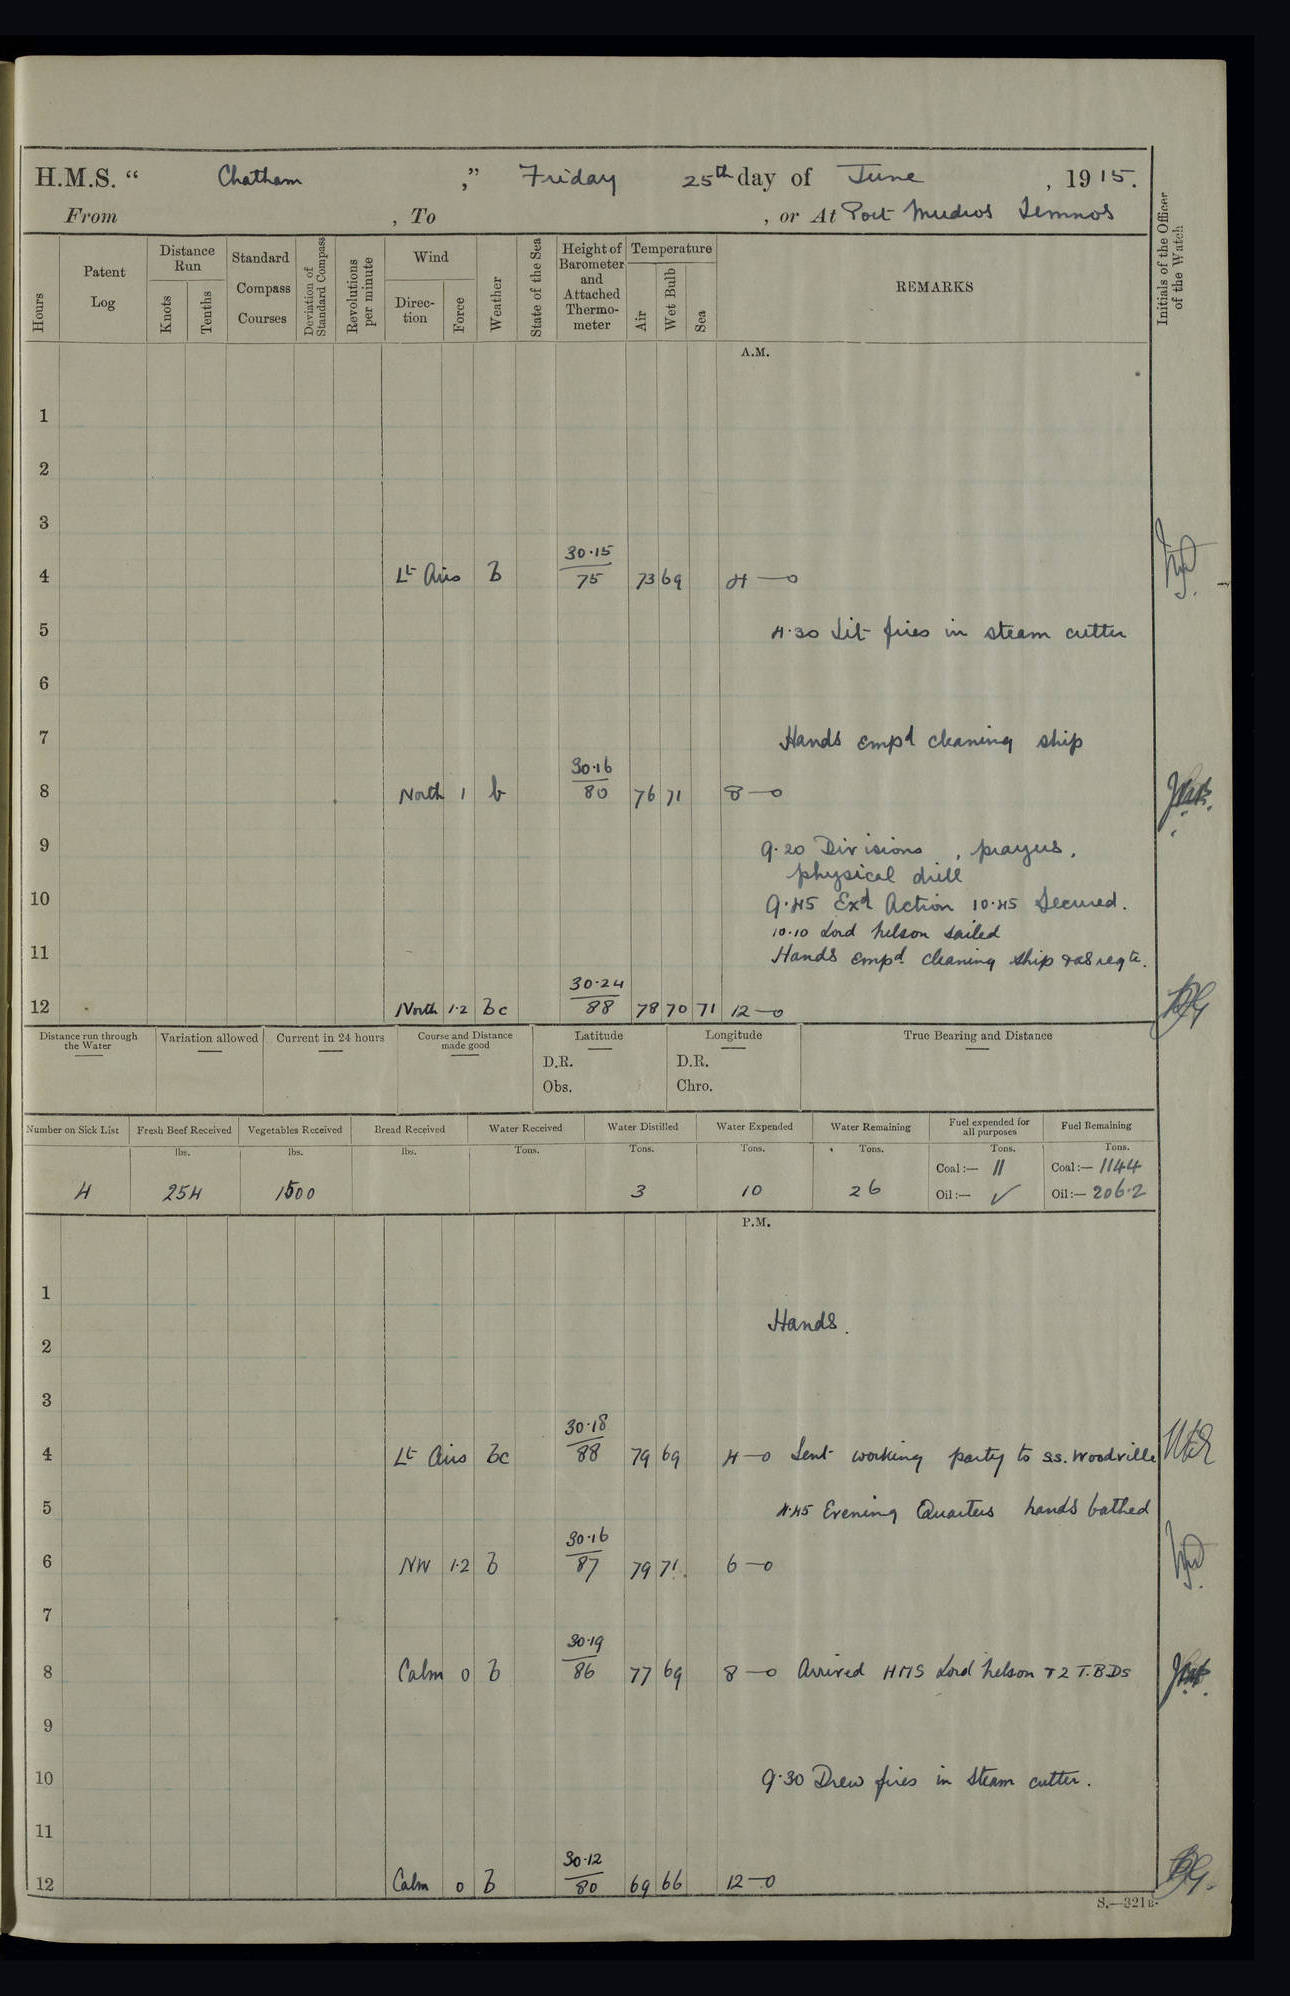 H.M.S. “ Chatham ,” Friday 25th day of June , 1915.
From , To , or At Port Mudros Lemnos
Hours
Patent Log
Distance Run
Knots
Tenths
Standard Compass Courses
Deviation of Standard Compass
Revolutions per minute
Wind
Direc-tion
Force
Weather
State of the Sea
Height of Barometer and Attached Thermo-meter
Temperature
Air
Wet Bulb
Sea
REMARKS
Initials of the Officer of the Watch
A.M.
1
2
3
4 Lt Airs B 30.15/75 73 69 4—0
5 4.30 Lit fires in steam cutter
6
7 Hands empd cleaning ship
8 North 1 b 30.16/80 76 71 8—0
9 9.20 Divisions , prayers,
physical drill
10 9.45 Exd Action 10.45 Secured.
10.10 Lord Nelson sailed
11 Hands empd cleaning ship & as reqte.
12 North 1.2 Bc 30.24/88 78 70 71 12—0
Distance run through the Water
Variation allowed
Current in 24 hours
Course and Distance made good
Latitude
D.R.
Obs.
Longitude
D.R.
Chro.
True Bearing and Distance
Number on Sick List
4
Fresh Beef Received
lbs.
254
Vegetables Received
lbs.
1500
Bread Received
lbs.
Water Received
Tons.
Water Distilled
Tons.
3
Water Expended
Tons.
10
Water Remaining
Tons.
26
Fuel expended for all purposes
Tons.
Coal:— 11
Oil:— ✓
Fuel Remaining
Tons.
Coal:— 1144
Oil:— 206.2
P.M.
1
Hands.
2
3
4 Lt Airs Bc 30.18/88 79 69 4—0 Sent working party to s.s. Woodville
5 4.45 Evening Quarters hands bathed
6 NW 1.2 B 30.16/87 79 71. 6—0
7
8 Calm 0 B 30.19/86 77 69 8—0 Arrived HMS Lord Nelson & 2 T.B.Ds
9
10 9.30 Drew fires in steam cutter.
11
12 Calm 0 B 30.12/80 69 66 12—0
S.—321B.